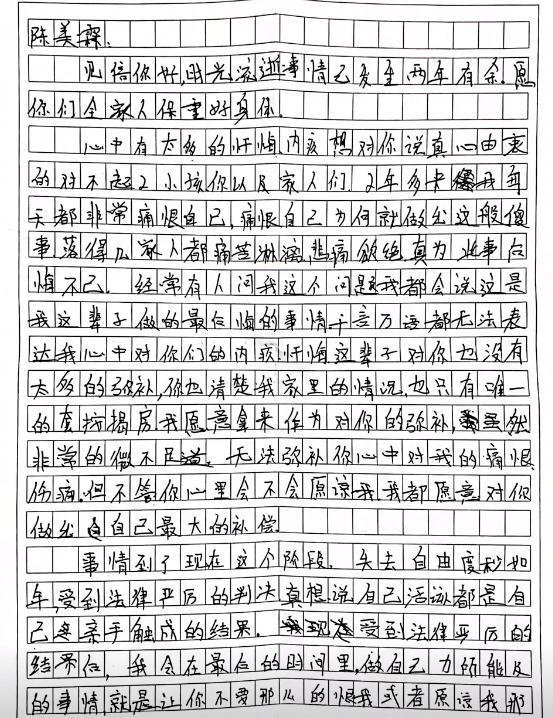 陈美霖.
见信你好,时光流逝事情已发至两年有余.愿
你们全家人保重好身体.
心中有太多的忏悔内疚想对你说真心由衷
的对不起2小孩你以及家人们,2年多来我每
天都非常痛恨自己,痛恨自己为何就做出这般傻
事,落得几家人都痛苦淋漓,悲痛欲绝真为此事后
悔不已. 经常有人问我这个问题我都会说这是
我这辈子做的最后悔的事情千言万语都无法表
达我心中对你们的内疚忏悔这辈子对你也没有
太多的弥补,你也清楚我家里的情况,也只有唯一
的套按揭房我愿意拿来作为对你的弥补,虽然
非常的微不足道,无法弥补你心中对我的痛恨
伤痛.但不管你心里会不会原谅我我都愿意对你
做出自己最大的补偿
事情到了现在这个阶段.失去自由度秒如
年,受到法律严厉的判决真想说自己活该都是自
己亲手触成的结果.我现在受到法律严厉的
结果后,我会在最后的时间里,做自己力所能及
的事情,就是让你不要那么的恨我或者原谅我那